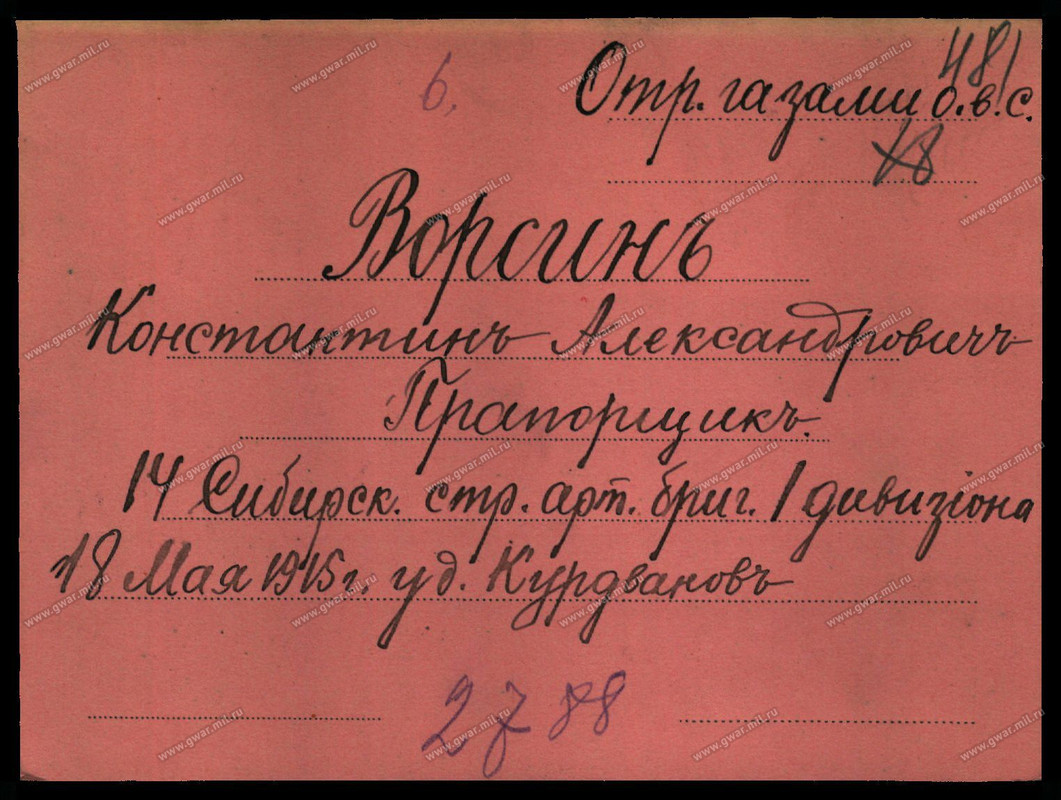 481
6.
Отр. газами о.в.с.
18
Ворсинъ
Константинъ Александровичъ
Прапорщикъ.
14 Сибирск. стр. арт. бриг. 1 дивизіона
18 Мая 1915 г. у д. Курдвановъ
2788
www.gwar.mil.ru